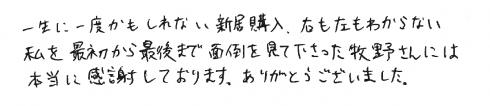 一生に一度かもしれない新居購入、右も左もわからない
私を最初から最後まで面倒を見て下さった牧野さんには
本当に感謝しております。ありがとうございました。